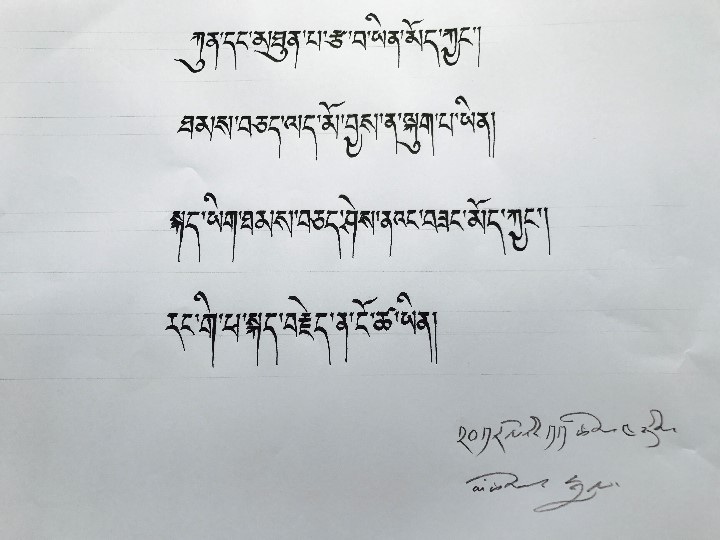 ཀུན་དང་མཐུན་པ་རྩ་བ་ཡིན་མོད་ཀྱང་།།
ཐམས་བཅད་འད་མོ་བྱས་ན་ལྐུག་པ་ཡིན།
སྐད་ཡིག་ཐམས་བཅད་ཤེས་ནའང་བཟང་མོད་ཀྱང་།།
རང་གི་ཕ་སྐད་བརྗེད་ན་ངོ་ཚ་ཡིན།